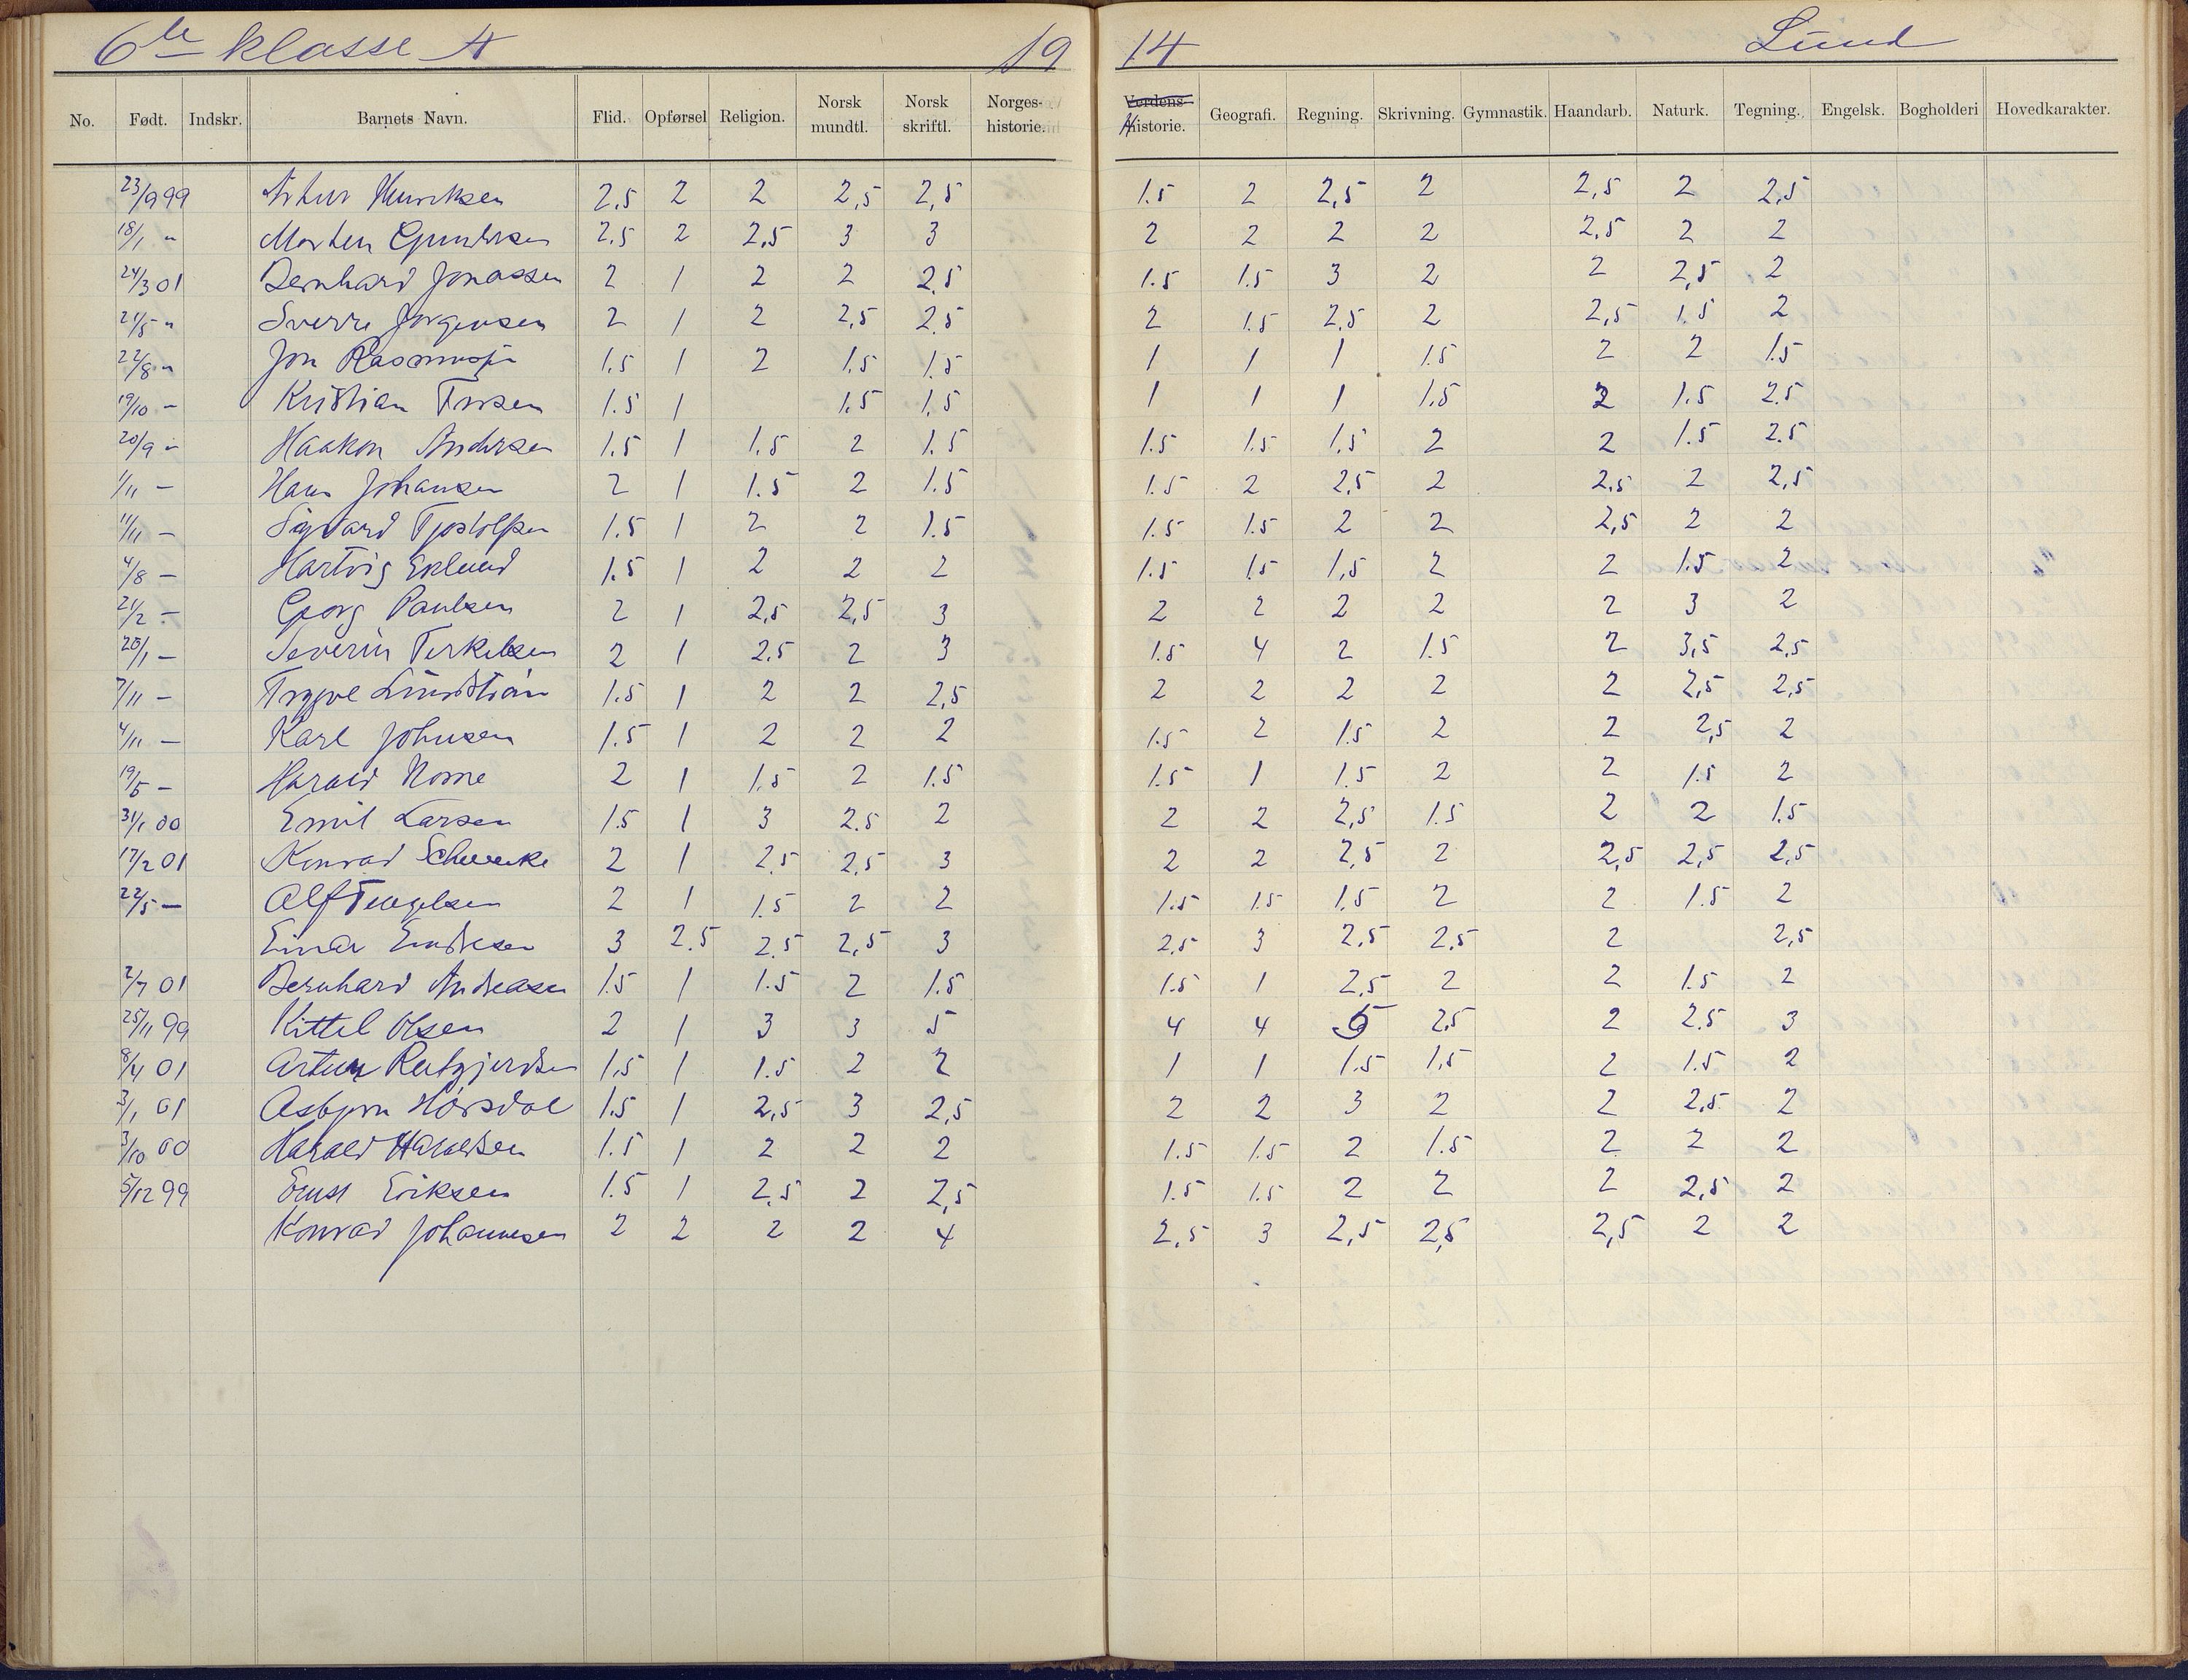 6te klasse A 19 14 Lund
No. Født. Indskr. Barnets Navn. Flid. Opførsel Religion. Norsk mundtl. Norsk skriftl. Norges-historie. Verdens- Historie. Geografi. Regning. Skrivning. Gymnastik. Haandarb. Naturk. Tegning. Engelsk. Bogholderi Hovedkarakter.
23/9 99 Artur Henriksen 2.5 2 2 2,5 2,5 1.5 2 2,5 2 2,5 2 2,5
18/1 " Morten Gundersen 2.5 2 2,5 3 3 2 2 2 2 2,5 2 2
24/3 01 Bernhard Jonassen 2 1 2 2 2.5 1.5 1.5 3 2 2 2,5 2
21/5 " Sverre Jørgensen 2 1 2 2,5 2.5 2 1.5 2,5 2 2,5 1.5 2
22/8 " Jon Rasmussen 1.5 1 2 1,5 1.5 1 1 1 1.5 2 2 1.5
19/10 – Kristian 1.5 1 1,5 1,5 1 1 1 1,5 2 1.5 2.5
20/9 " Haakon Andersen 1.5 1 1,5 2 1.5 1.5 1.5 1,5 2 2 1.5 2.5
1/11 – Hans Johansen 2 1 1.5 2 1.5 1.5 2 2,5 2 2,5 2 2,5
11/11 – Sigvard Tjostolfsen 1.5 1 2 2 1.5 1.5 1.5 2 2 2,5 2 2
4/8 – Hartvig Eklund 1.5 1 2 2 2 1.5 1.5 1,5 2 2 1.5 2
21/2 – Georg Paulsen 2 1 2,5 2,5 3 2 2 2 2 2 3 2
25/1 – Severin Terkelsen 2 1 2.5 2 3 1.5 4 2 1.5 2 3,5 2,5
7/11 – Trygve 1.5 1 2 2 2,5 2 2 2 2 2 2,5 2,5
4/11 – Karl Johnsen 1.5 1 2 2 2 1.5 2 1.5 2 2 2,5 2
19/5 – Harald Nome 2 1 1,5 2 1.5 1.5 1 1.5 2 2 1.5 2
31/1 00 Emil Larsen 1.5 1 3 2.5 2 2 2 2,5 1.5 2 2 1.5
17/2 01 Konrad Schwencke 2 1 2.5 2,5 3 2 2 2,5 2 2,5 2,5 2,5
22/5 – Alf Tengelsen 2 1 1.5 2 2 1.5 1.5 1.5 2 2 1.5 2
Einar Endresen 3 2.5 2.5 2,5 3 2.5 3 2,5 2.5 2 2,5
2/7 01 Bernhard Andreasen 1.5 1 1.5 2 1.5 1.5 1 2,5 2 2 1.5 2
25/11 99 Kittel Olsen 2 1 3 3 5 4 4 5 2,5 2 2.5 3
8/4 01 Artur 1,5 1 1.5 2 2 1 1 1.5 1,5 2 1.5 2
3/1 01 Asbjørn Hørsdal 1.5 1 2,5 3 2,5 2 2 3 2 2 2,5 2
3/10 00 Harald Haraldsen 1.5 1 2 2 2 1.5 1.5 2 1.5 2 2 2
5/12 99 Ernst Eriksen 1.5 1 2,5 2 2,5 1.5 1.5 2 2 2 2,5 2
Konrad Johannesen 2 2 2 2 4 2,5 3 2,5 2,5 2,5 2 2